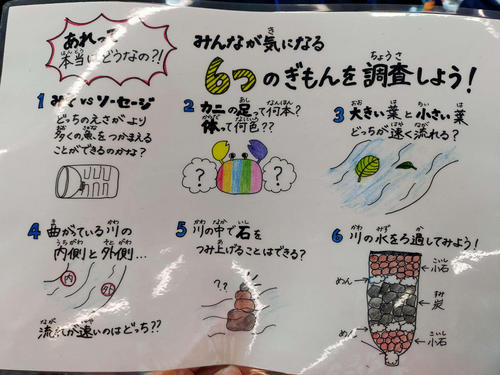 あれって
本当はどうなの?!
みんなが気になる
6つのぎもんを調査しよう!
1 みくvsソーセージ
どっちのえさがより
多くの魚をつかまえる
ことができるのかな?
2 カニの足って何本?
体って何色??
? ?
3 大きい葉と小さい葉
どっちが速く流れる?
4 曲がっている川の
内側と外側…
内 外
流れが速いのはどっち??
5 川の中で石を
つみ上げることはできる?
??
6 川の水をろ過してみよう!
小石
めん
炭
めん
小石